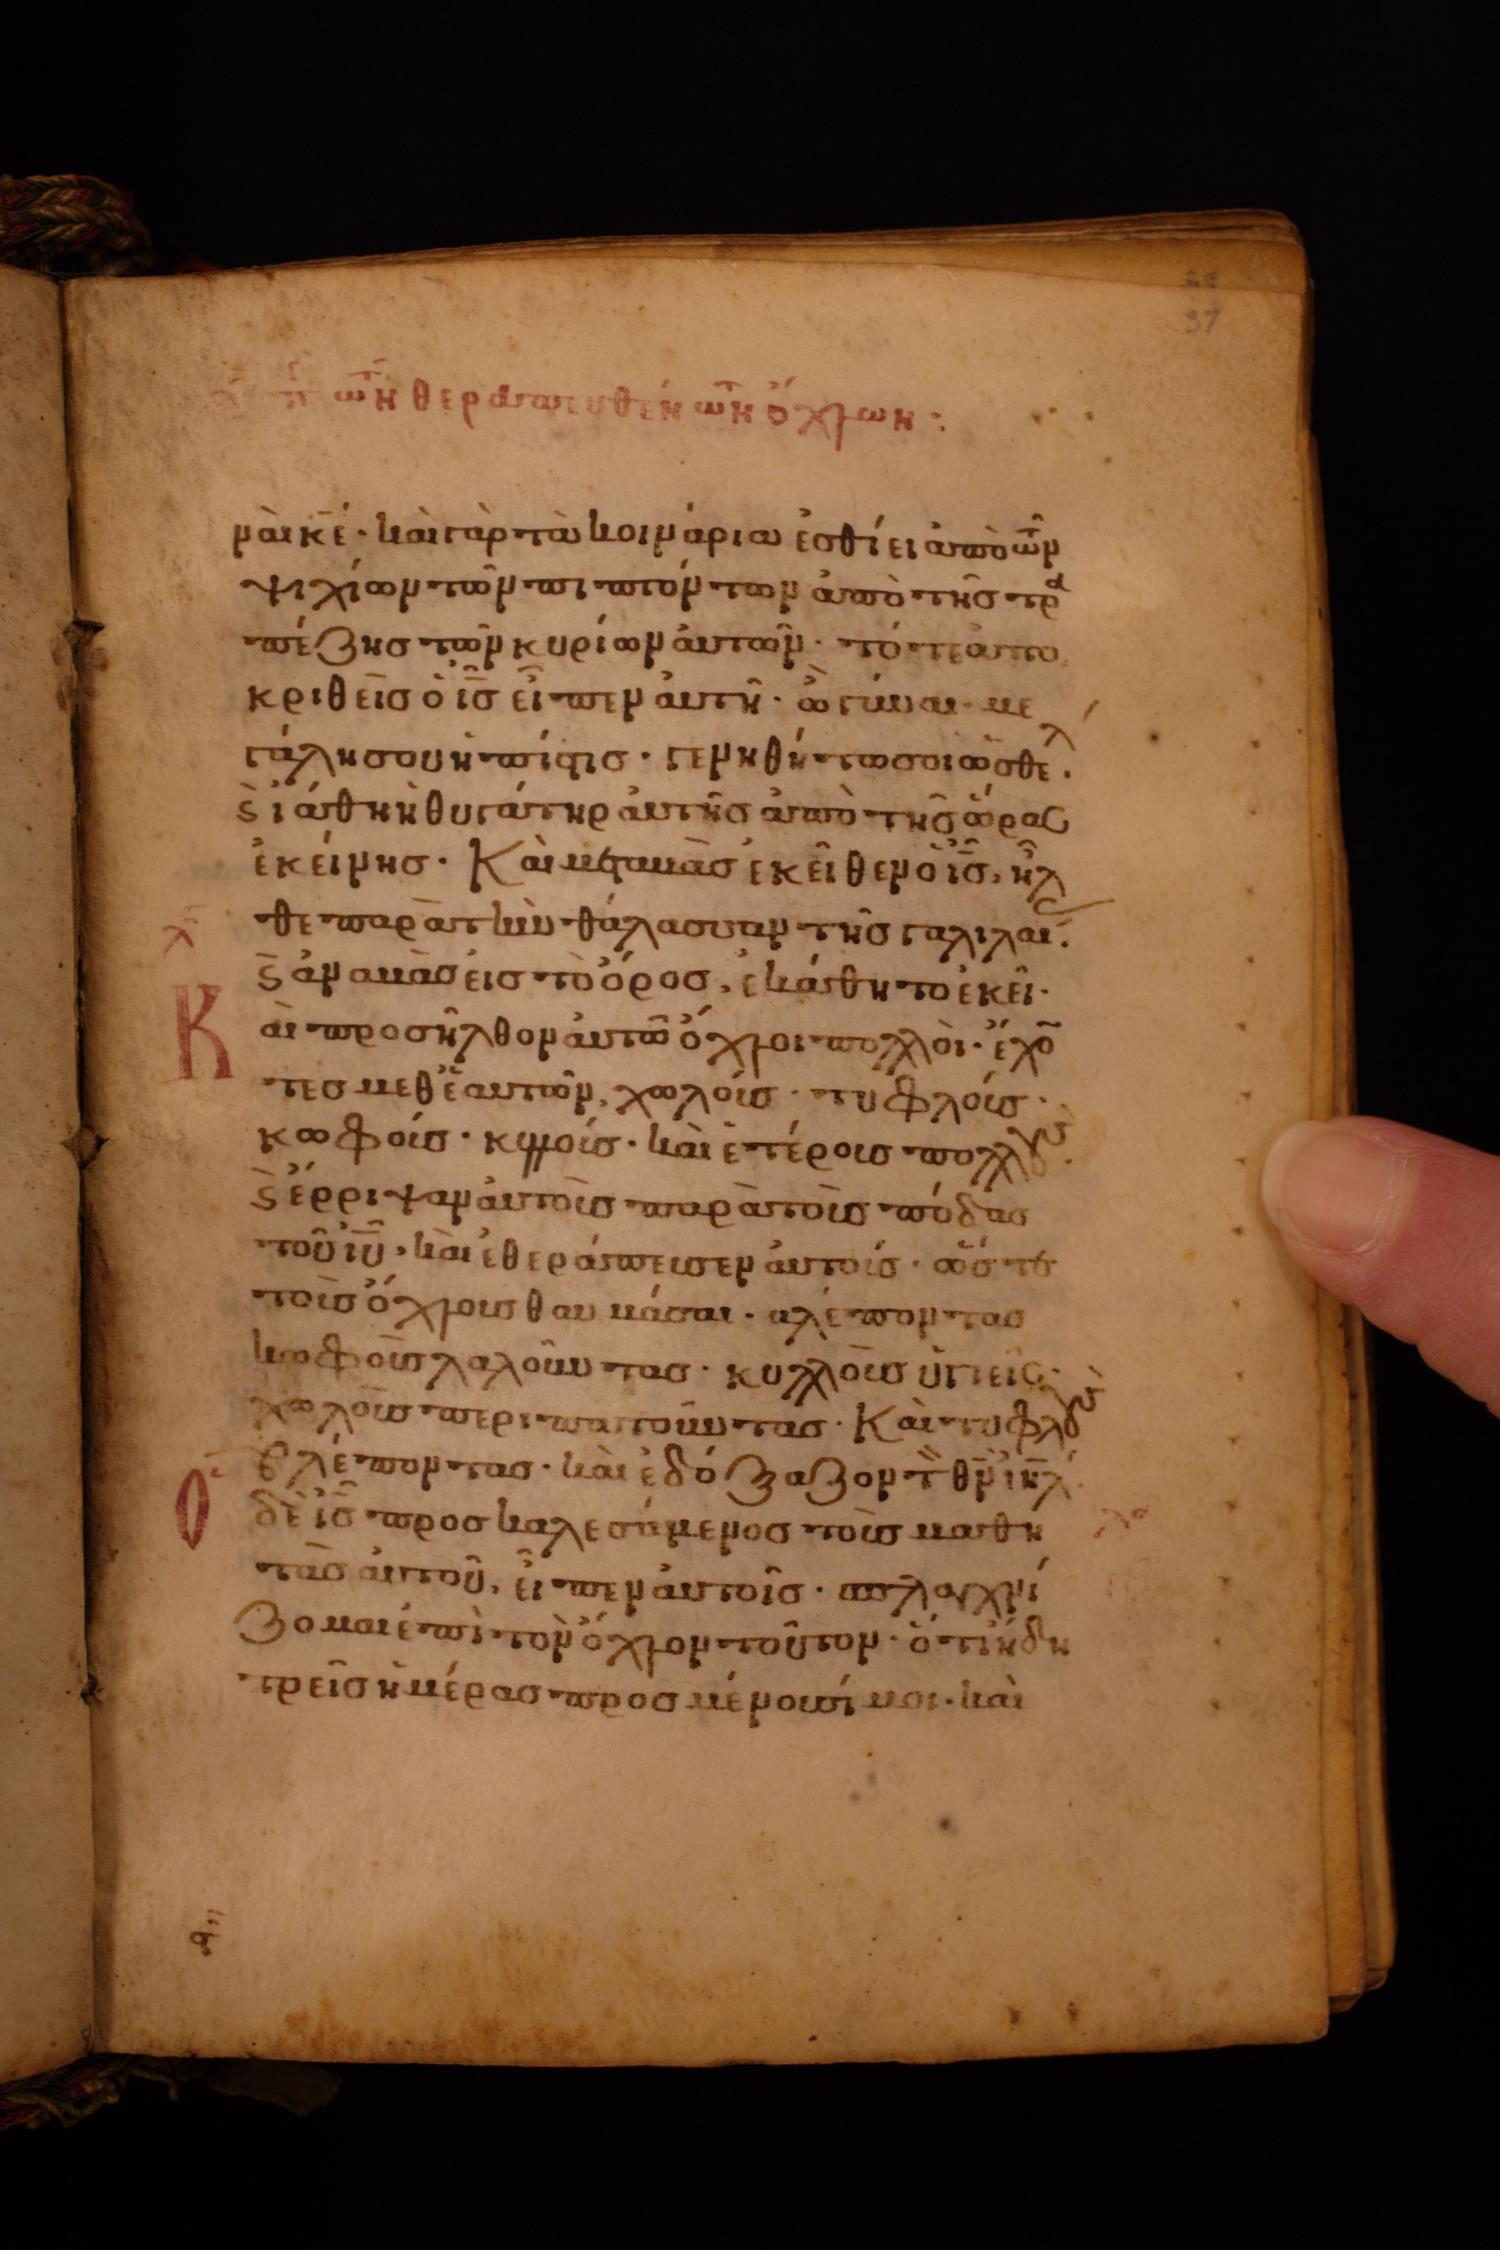 τῶν θεραπευθέντων ὄχλων:
37
ναὶ κ̅ε̅· καὶ γὰρ τὰ κοινάρια ἐσθίει ἀπὸ τῶν
ψιχίων τῶν πιπτόντων ἀπὸ τῆς τρα
πέζης τῶν κυρίων ἀυτῶν· τότε ἀπο
κριθεὶς ὁ ι̅ς̅ εἶπεν ἀυτῆ· ὦ γύναι· με
γάλη σου ἡ πίστις· γενηθήτω σοι ὡς θελ
ϛ̀ ἰάθη ἡ θυγάτηρ ἀυτῆς ἀπὸ τῆς ὥρας
ἐκείνης· Καὶ μεταβὰς ἐκεῖθεν ὁ ι̅ς̅, ἦλ
θε παρὰ τὴν θάλασσαν τῆς γαλιλαί
ϛ̀ ἀναβὰς εἰς τὸ ὄρος, ἐκάθητο ἐκεῖ·
Κ
αὶ προσῆλθον ἀυτῶ ὄχλοι πολλοὶ· ἔχο̅
τες μεθ' ἑαυτῶν, χωλούς· τυφλούς·
κωφούς· κυλλούς· καὶ ἑτέρους πολλοὺς
ϛ̀ ἔρριψαν ἀυτοὺς παρὰ τοὺς πόδας
τοῦ ι̅υ̅, καὶ ἐθεράπευσεν ἀυτούς· ὥστε
τοὺς ὄχλους θαυμάσαι· βλέποντας
κωφοὺς λαλοῦντας· κυλλοὺς ὑγιεῖς·
χωλοὺς περιπατοῦντας· Καὶ τυφλοὺς
βλέποντας· καὶ ἐδόξαζον τὸν θ̅ν̅ ι̅η̅λ̅
Ὁ
δὲ ι̅ς̅ προσκαλεσάμενος τοὺς μαθη
τὰς ἀυτοῦ, εἶπεν ἀυτοῖς· σπλαγχνί
ζομαι ἐπὶ τὸν ὄχλον τοῦτον· ὅτι ἤδη
τρεῖς ἡμέρας προσμένουσί μοι· καὶ